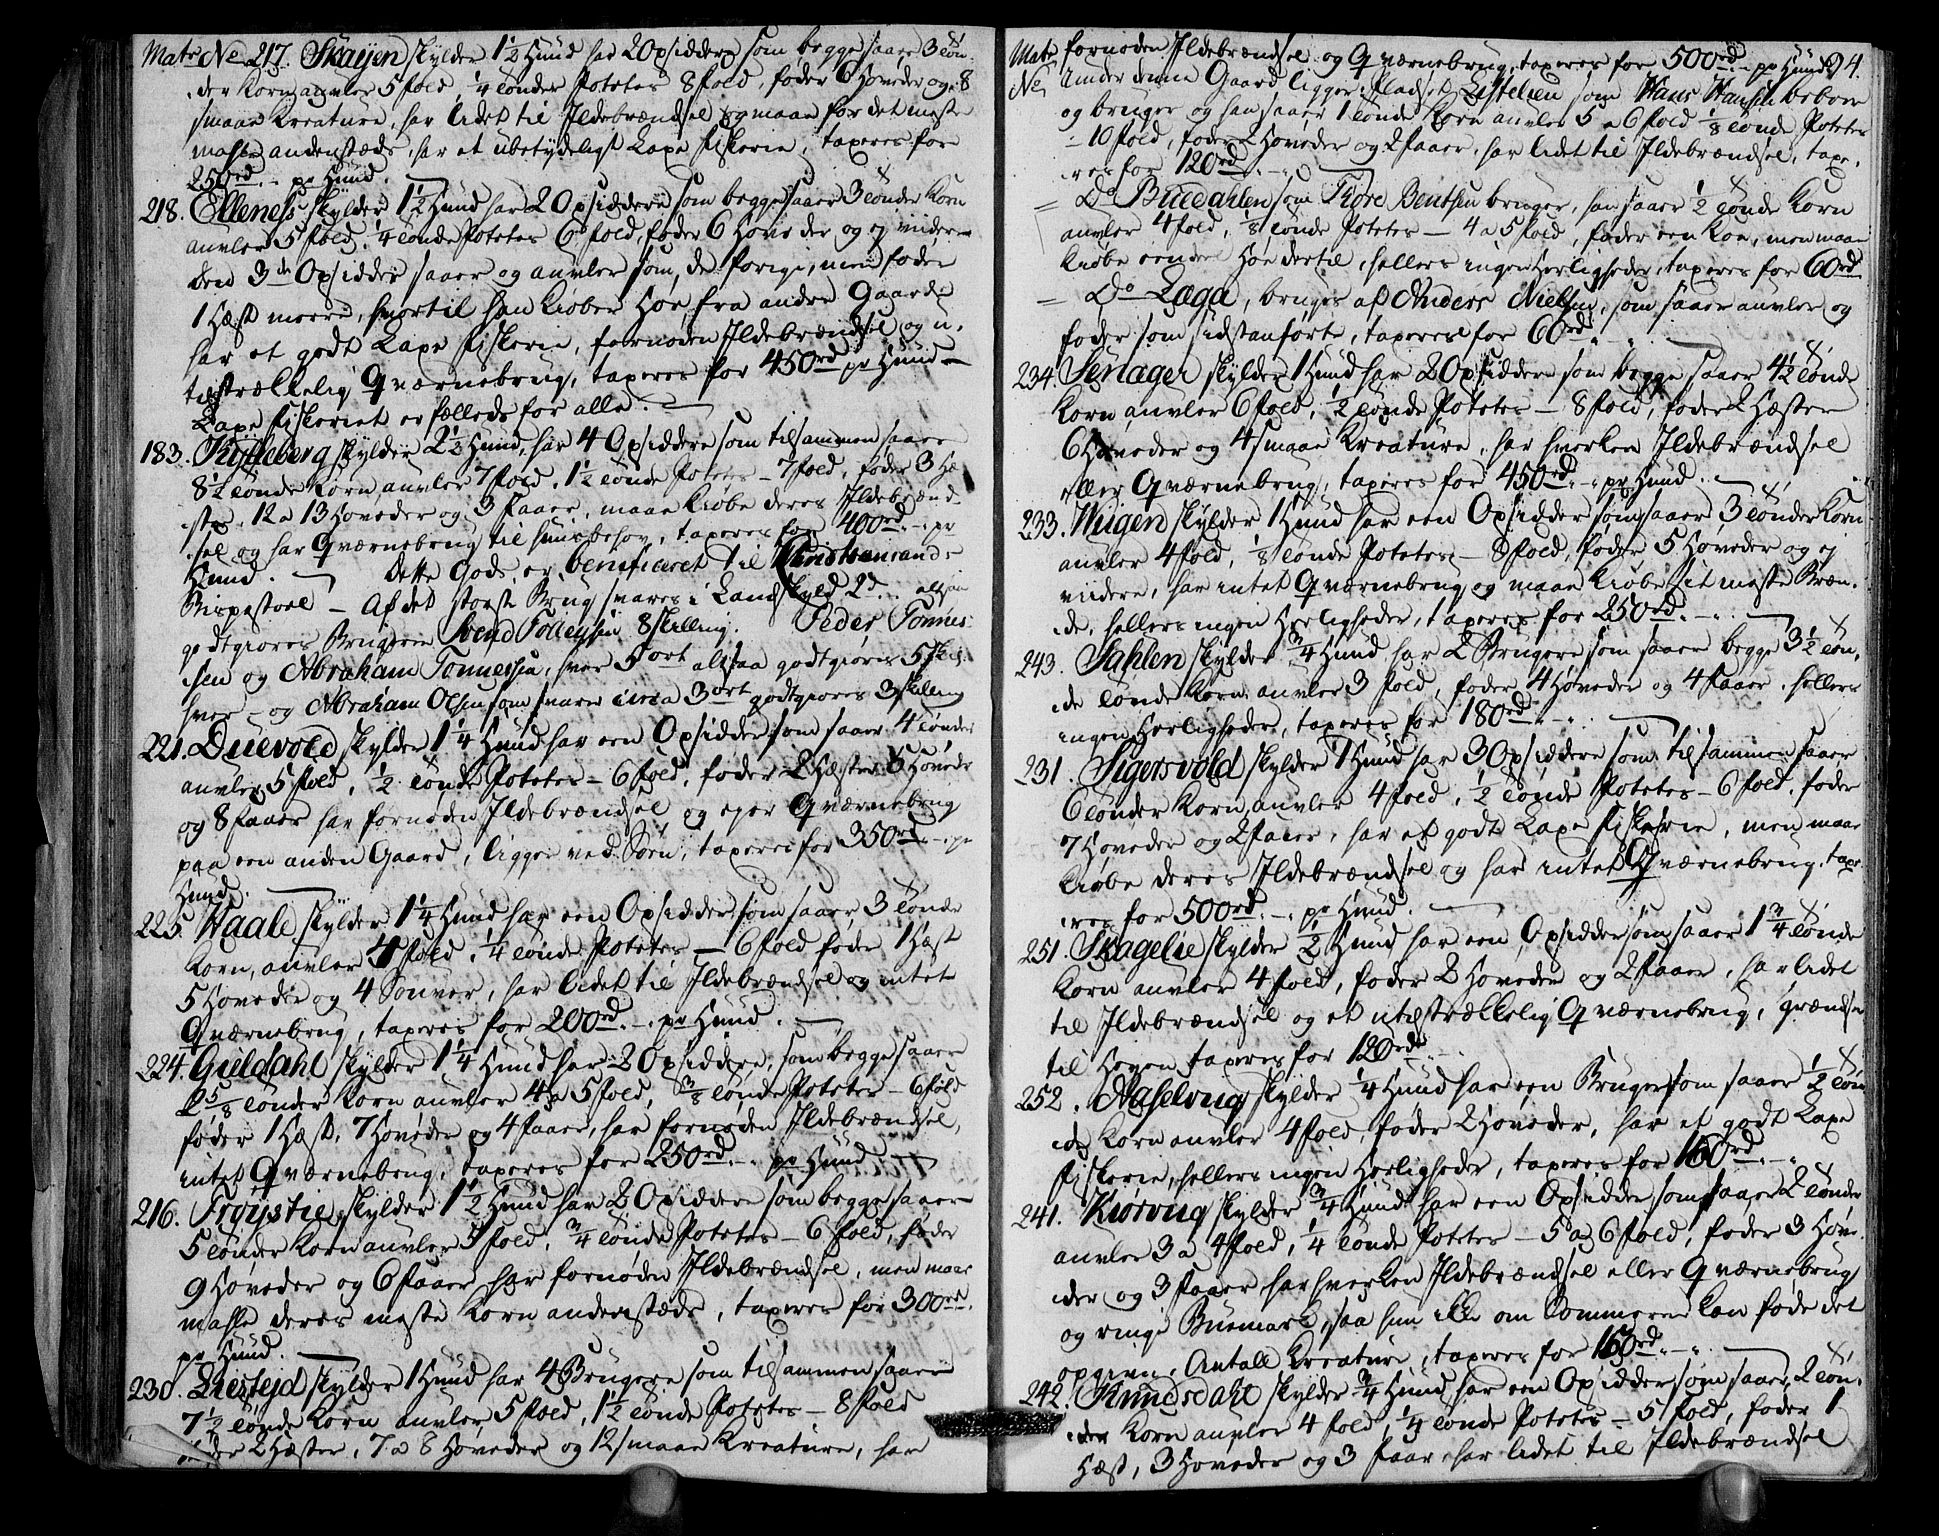 Matr No 217. Skaijen skylder 1½ Huud har 2 Opsiddere som begge saaer 3 tøn-
der Korn avler 5 fold, ¼ tønder Potetes 8 fold, føder 6 Høveder og 8
smaae Kreature, har lidet til Ildebrændsel og maae for det meste
mahle andenstæds, har et ubetydeligt Laxe fiskerie, taxeres for
250rd -„- pr Huud.
218. Ellenes skylder 1½ Huud har 2 Opsiddere som begge saaer 3 tønder Korn
avler 5 fold, ¼ tønde Potetes 6 fold, føder 6 Høveder og ej viidere
den 3de Opsidder saaer og avler som de forige, men føder
1 Hæst meere, hvortil han kiøber Høe fra andre Gaarde
har et godt Laxe fiskerie, fornøden Ildebrændsel og u-
tilstrækkelig Qværnebrug, taxeres for 450rd pr Huud -
Laxe fiskeriet er fælleds for alle.
183. Kiølleberg skylder 2½ Huud, har 4 Opsiddere som tilsammen saaer
8½ tønde Korn avler 7 fold, 1½ tønde Potetes - 7 fold, føder 3 Hæ-
ster, 12 a 13 Høveder og 3 Faaer, maae kiøbe deres Ildebrænd-
sel og har Qværnebrug til huusbehov, taxeres for 400rd -„- pr
Huud. Dette Gods er beneficeret til Christiansands
Bispestoel - Af det største Brug svares i Landskyld 2d altsaa
godtgiøres Brugeren Svend Tollefsen 8 skilling. Peder Tønnes-
sen og Abraham Tønnessen, hver 5 ort altsaa godtgiøres 5 skil.
hver - og Abraham Olsen som svarer circa 3 ort godtgiøres 3 skilling
221. Duevold skylder 1¼ Huud har een Opsidder som saaer 4 tønder
avler 5 fold, ½ tønde Potetes - 6 fold, føder 2 Hæster 8 Høveder
og 8 Faaer har fornøden Ildebrændsel og ejer Qværnebrug
paa een anden Gaard, ligger ved Søen, taxeres for 350rd - pr
Huud.
225. Haale skylder 1¼ Huud har een Opsidder som saaer 3 tønde
Korn, avler 4 fold, ¼ tønde Potetes - 6 fold føder 1 Hæst
5 Høveder og 4 Souver, har lidet til Ildebrændsel og intet
Qværnebrug, taxeres for 200rd -„- pr Huud.
224. Guldahl skylder 1¼ Huud har 2 Opsiddere, som begge saaer
2⅝ tønder Korn avler 4 a 5 fold, ⅜ tønde Potetes - 6 fold
føder 1 Hæst, 7 Høveder og 4 Faaer, har fornøden Ildebrændsel,
intet Qværnebrug, taxeres for 250rd -„- pr Huud
216. Frøystie skylder 1½ Huud har 2 Opsiddere som begge saaer
5 tønder Korn avler 5 fold, ¾ tønde Potetes - 6 fold, føder
9 Høveder og 6 Faaer, har fornøden Ildebrændsel, men maae
mahle deres meste Korn andenstæds, taxeres for 300rd.
pr Huud.
230. Liestejd skylder 1 Huud har 4 Brugere som tilsammen saaer
7½ tønde Korn avler 5 fold, 1½ tønde Potetes - 8 fold
føder 2 Hæster, 7 a 8 Høveder og 12 smaae Kreature, har
Matr No
94.
fornøden Ildebrændsel og Qværnebrug, taxeres for 500rd -„- pr Huud.
Under denne Gaard ligger Pladset Listelien som Hans Hansen beboer
og bruger og han saaer 1 tønde Korn avler 5 a 6 fold ⅛ tønde Potetes
- 10 fold, føder 2 Høveder og 2 Faaer, har lidet til Ildebrændsel, taxe-
res for 120rd -„-
- Do Buedahlen som Tore Bentsen bruger, han saaer ½ tønde Korn
avler 4 fold, ⅛ tønde Potetes - 4 a 5 fold, føder een Koe, men maae
kiøbe eendeel Høe dertil, hellers ingen Herligheder, taxeres for 60rd
- Do Laga, bruges af Anders Nielsen, som saaer avler og
føder som sidstanførte, taxeres for 60rd -„-
234. Seriager skylder 1 Huud har 2 Opsiddere som begge saaer 4½ tønde
Korn avler 6 fold, ½ tønde Potetes - 8 fold, føder 2 Hæster
6 Høveder og 4 smaae Kreature, har hverken Ildebrændsel
eller Qværnebrug, taxeres for 450rd -„- pr Huud.
233. Wiigen skylder 1 Huud har een Opsidder som saaer 3 tønder Korn
avler 4 fold, ⅛ tønde Potetes - 8 fold, føder 5 Høveder og ej
viidere, har intet Qværnebrug og maae kiøbe sit meste Bræn-
de, hellers ingen Herligheder, taxeres for 250rd -„-
243. Dahlen skylder ¾ Huud har 2 Brugere som saaer begge 3½ tøn-
de tønde Korn avler 3 fold, føder 4 Høveder og 4 Faaer, hellers
ingen Herligheder, taxeres for 180rd -„-
231. Sigersvold skylder 1 Huud har 3 Opsiddere som tilsammen saaer
6 tønder Korn avler 4 fold, ½ tønde Potetes - 6 fold, føder
7 Høveder og 2 Faaer, har et godt Laxe fiskerie, men maae
kiøbe deres Ildebrændsel og har intet Qværnebrug, taxe-
res for 500rd -„- pr Huud.
251. Skagelie skylder ½ Huud har een Opsidder som saaer 1¾ tønde
Korn avler 4 fold, føder 2 Høveder og 2 Faaer, har lidet
til Ildebrændsel og et utilstrækkelig Qværnebrug, grændser
til Heyen taxeres for 120rd -
252. Naselvug skylder ¼ Huud har een Bruger som saaer ½ tøn-
de Korn avler 4 fold, føder 2 Høveder, har et godt Laxe
fiskerie, hellers ingen Herligheder, taxeres for 160rd -„-
241. Kiørvug skylder ¾ Huud har een Opsidder som saaer 2 tønder
avler 3 a 4 fold, ¼ tønde Potetes - 5 a 6 fold, føder 3 Høve-
der og 3 Faaer har hverken Ildebrændsel eller Qværnebrug
og ringe Buemark, saa hun ikke om Sommeren kan føde det
opgivne Antall Kreature, taxeres for 150rd -„-
242. Knudsdahl skylder ¾ Huud har een Opsidder som saaer 2 tøn-
der Korn avler 4 fold, ¼ tønde Potetes - 5 fold, føder 1
Hæst, 3 Høveder og 3 Faar har lidet til Ildebrændsel